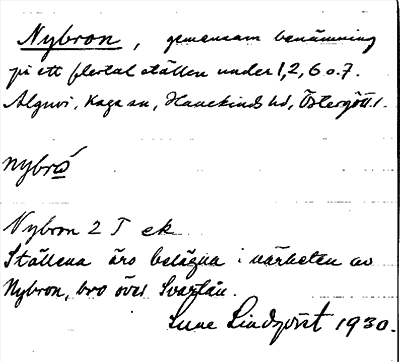 Nybron, gemensam benämning
på ett flertal ställen under 1, 2, 6 o. 7.
Alguvi, Kaga sn, Hanekinds hd, Östergötl.
nybrǫ́
Nybron 2 T ek
Ställena äro belägna i närheten av
Nybron, bro över Svartån.
Sune Lindqvist 1930.